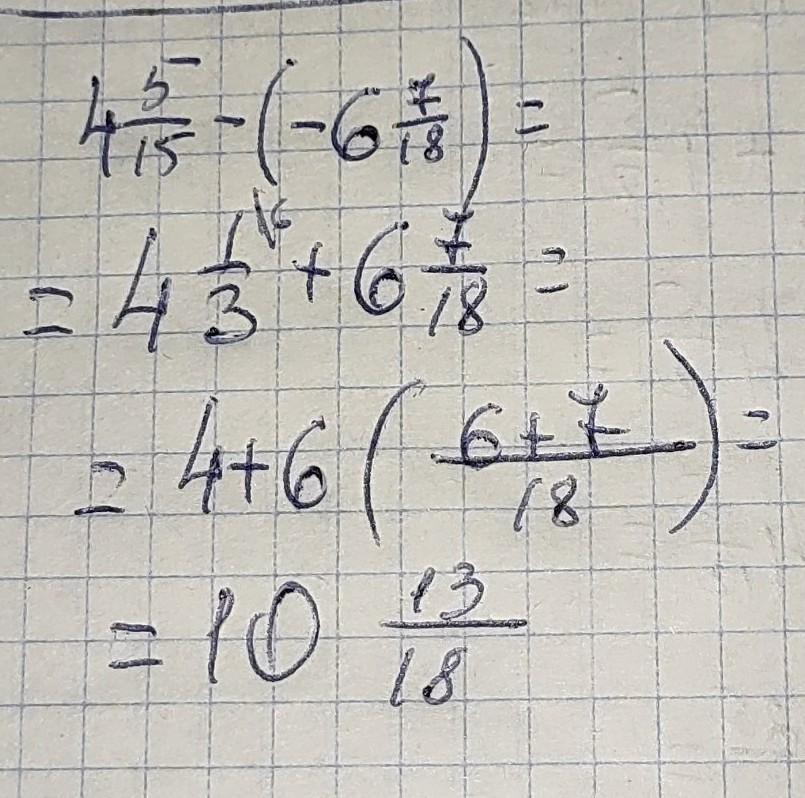 4 5/15 - (-6 7/18) =
= 4 1/3 + 6 7/18 =
= 4+6 ( 6+7/18 ) =
= 10 13/18